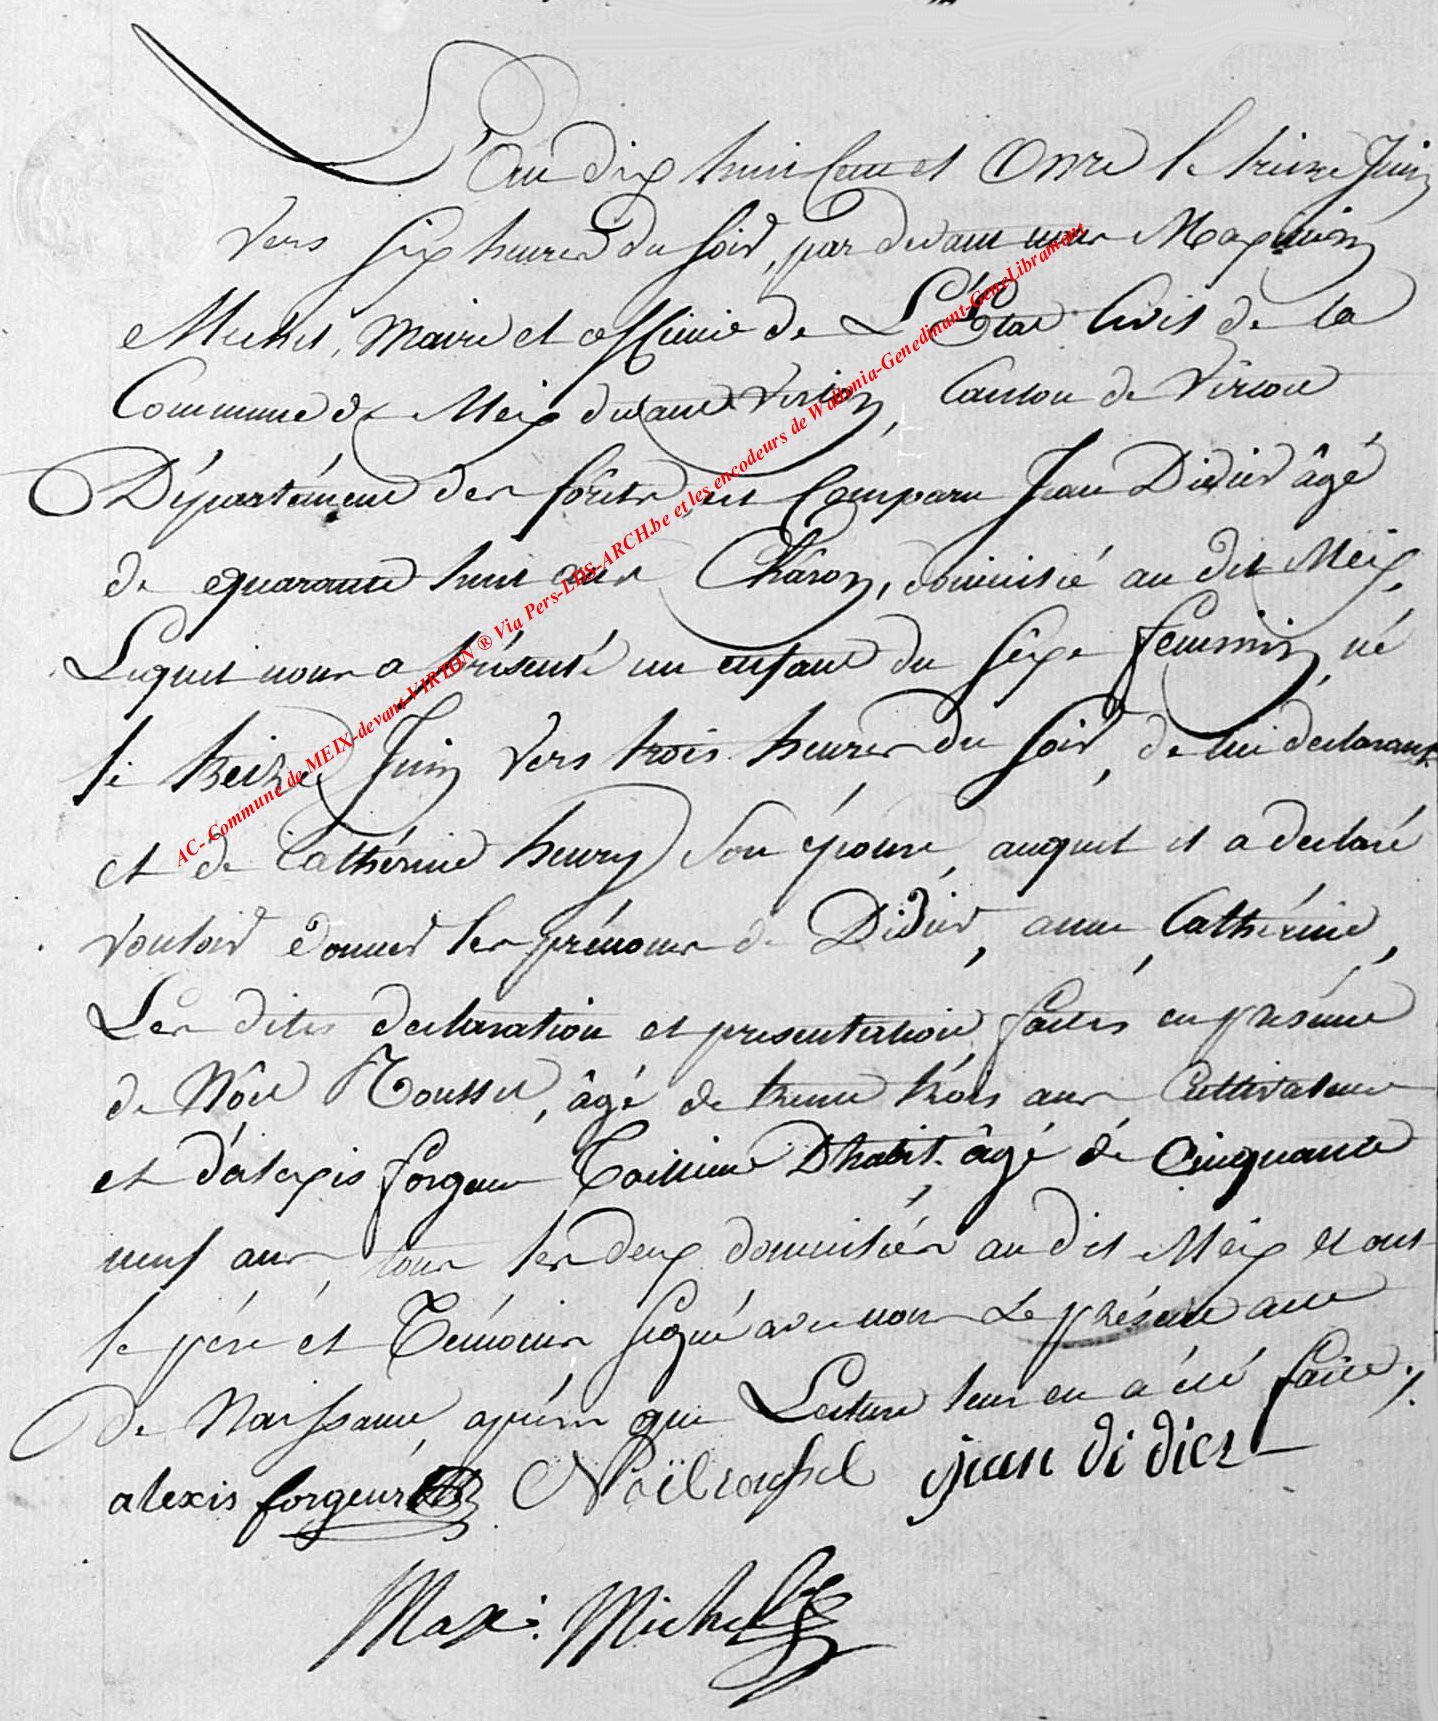 L'an dix huit cent et onze le treize Juin
vers six heures du soir, par devant nous Maximin
Michel, Maire et officier de L'Etat Civil de la
Commune de Meix devant Virton, Canton de Virton
Département des forêts, est Comparu Jean Didier âgé
de quarante huit ans Charon, domicilié au dit Meix,
Lequel nous a présenté un enfant du sèxe feminin, né
le treize Juin vers trois heures du soir, de lui declarant
et de Cathérine henry son épouse, auquel il a declaré
vouloir donner les prénoms de Didier, anne, Cathérine,
Les dites declaration et presentation faites en présence
de Nôel Roussel, âgé de trente trois ans Cultivateur
et d'alexis forgeur Tailleur D'habit, âgé de Cinquante
neuf ans, tous les deux domiciliés au dit Meix et ont
le pére et Témoins signé avec nous Le présent acte
de Naissance, aprés que Lecture leur en a été faite ./.
alexis forgeur Noël roussel jean didier
Max: Michel
AC- Commune de MEIX-devant-VIRTON ® Via Pers-LDS-ARCH.be et les encodeurs de Wallonia-Genedinant-GeneLibramont